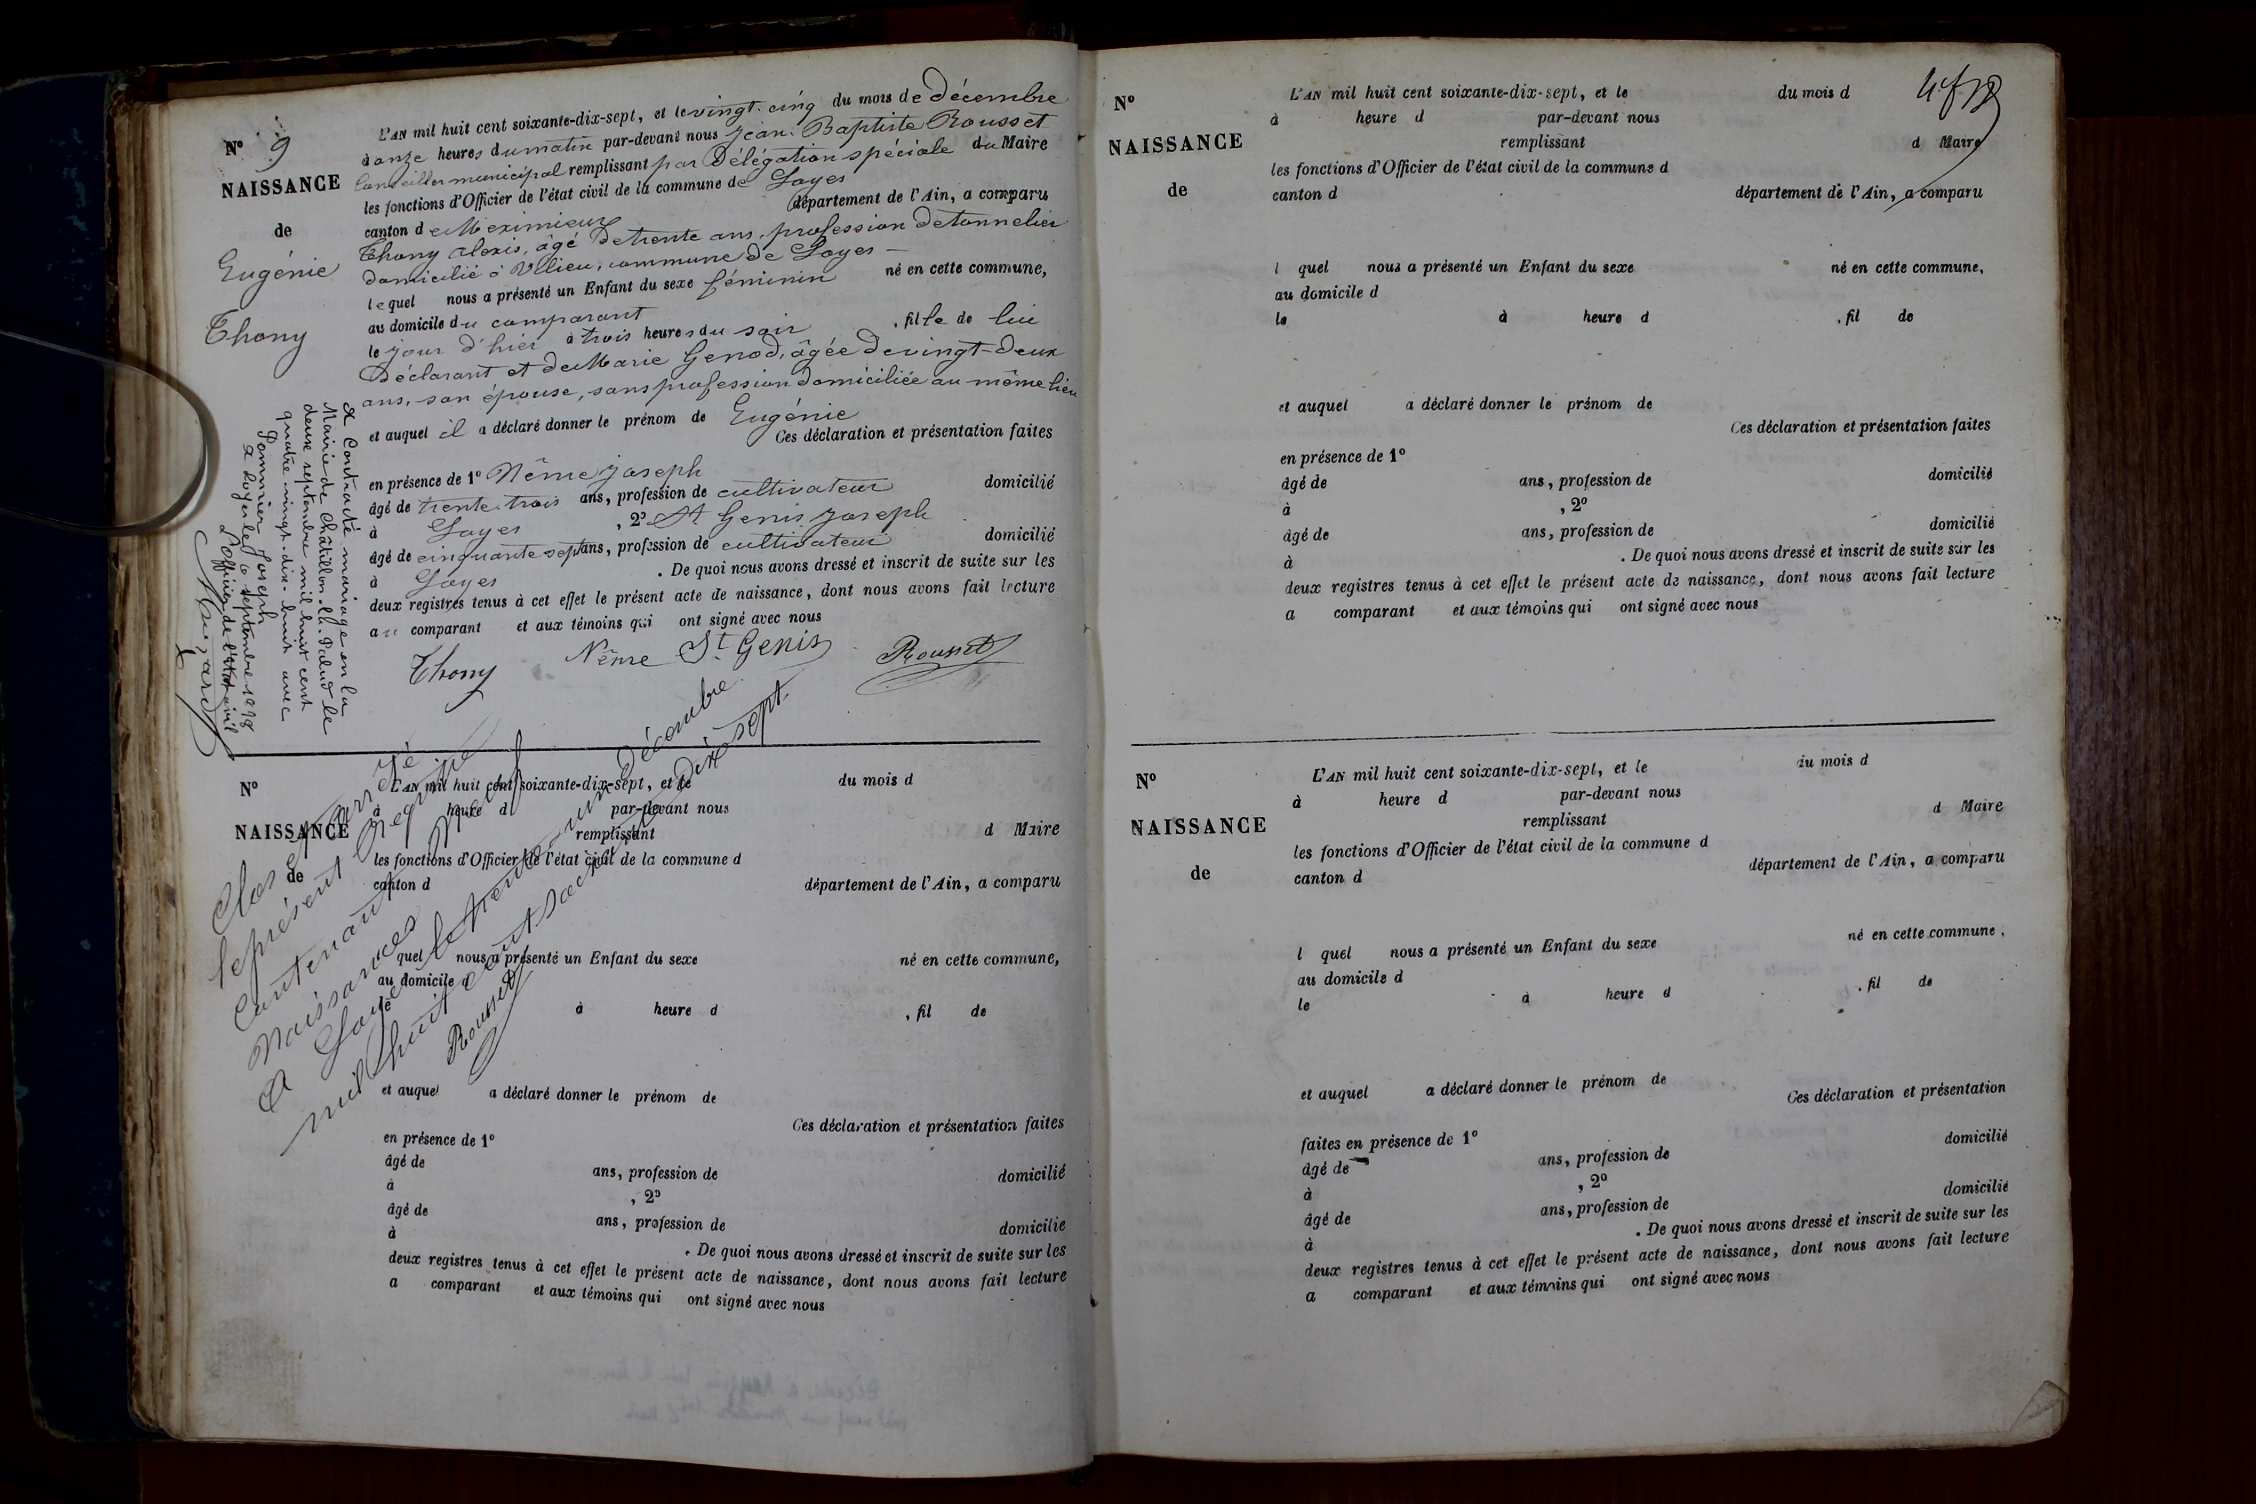 N° 9
NAISSANCE
de
Eugénie
Thony
L'AN mil huit cent soixante-dix-sept, et le vingt-cinq du mois de décembre
à onze heures du matin par-devant nous Jean-Baptiste Rousset
Conseiller municipal remplissant par Délégation spéciale du Maire
les fonctions d'Officier de l'état civil de la commune de Loyes
canton de Meximieux département de l'Ain, a comparu
Thony Alexis, âgé de trente ans, profession de tonnelier
domicilié à Villieu, commune de Loyes —
lequel nous a présenté un Enfant du sexe féminin né en cette commune,
au domicile du comparant
le jour d'hier à trois heures du soir , fille de lui
Déclarant et de Marie Genod, âgée de vingt-deux
ans, son épouse, sans profession domiciliée au même lieu
et auquel il a déclaré donner le prénom de Eugénie
Ces déclaration et présentation faites
en présence de 1° Nême Joseph
âgé de trente trois ans, profession de cultivateur domicilié
à Loyes , 2° St Genis Joseph
âgé de cinquante sept ans, profession de cultivateur domicilié
à Loyes . De quoi nous avons dressé et inscrit de suite sur les
deux registres tenus à cet effet le présent acte de naissance, dont nous avons fait lecture
au comparant et aux témoins qui ont signé avec nous
Thony Nême St Genis Rousset
A Contracté mariage en la
Mairie de Châtillon-la-Palud le
deux septembre mil huit cent
quatre vingt-dix-huit avec
Pommier Joseph
A Loyes le septembre 1898
L'officier de l'état civil
N°
NAISSANCE
de
L'AN mil huit cent soixante-dix-sept, et le du mois d
à heure d par-devant nous
remplissant d Maire
les fonctions d'Officier de l'état civil de la commune d
canton d département de l'Ain, a comparu
l quel nous a présenté un Enfant du sexe né en cette commune,
au domicile d
le à heure d , fil de
et auquel a déclaré donner le prénom de
Ces déclaration et présentation faites
en présence de 1°
âgé de ans, profession de domicilié
à , 2°
âgé de ans, profession de domicilié
à . De quoi nous avons dressé et inscrit de suite sur les
deux registres tenus à cet effet le présent acte de naissance, dont nous avons fait lecture
a comparant et aux témoins qui ont signé avec nous
Clos et arrêté
le présent Registre
Contenant neuf
Naissances
A Loyes le trente-un Décembre
mil huit cent soixante Dix-sept
Rousset
N°
NAISSANCE
de
L'AN mil huit cent soixante-dix-sept, et le du mois d
à heure d par-devant nous
remplissant d Maire
les fonctions d'Officier de l'état civil de la commune d
canton d département de l'Ain, a comparu
l quel nous a présenté un Enfant du sexe né en cette commune,
au domicile d
le à heure d , fil de
et auquel a déclaré donner le prénom de
Ces déclaration et présentation faites
en présence de 1°
âgé de ans, profession de domicilié
à , 2°
âgé de ans, profession de domicilié
à . De quoi nous avons dressé et inscrit de suite sur les
deux registres tenus à cet effet le présent acte de naissance, dont nous avons fait lecture
a comparant et aux témoins qui ont signé avec nous
N°
NAISSANCE
de
L'AN mil huit cent soixante-dix-sept, et le du mois d
à heure d par-devant nous
remplissant d Maire
les fonctions d'Officier de l'état civil de la commune d
canton d département de l'Ain, a comparu
l quel nous a présenté un Enfant du sexe né en cette commune,
au domicile d
le à heure d , fil de
et auquel a déclaré donner le prénom de
Ces déclaration et présentation
faites en présence de 1° domicilié
âgé de ans, profession de
à , 2°
âgé de ans, profession de domicilié
à . De quoi nous avons dressé et inscrit de suite sur les
deux registres tenus à cet effet le présent acte de naissance, dont nous avons fait lecture
a comparant et aux témoins qui ont signé avec nous